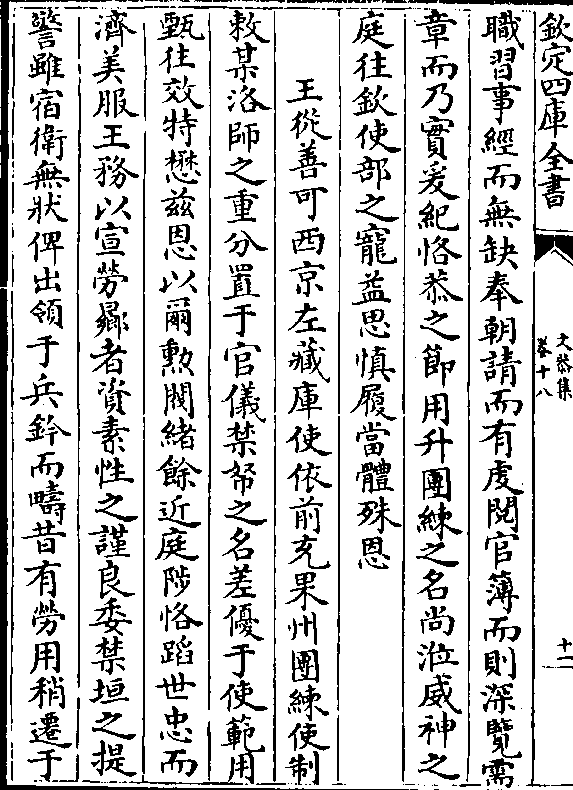 欽定四庫全書
文恭集
卷十八
十二
職習事經而無缺奉朝請而有虔閱官簿而則深覽需
章而乃實爰紀恪恭之節用升團練之名尚涖威神之
庭往欽使部之寵益思慎履當體殊恩
王從善可西京左藏庫使依前充果州團練使制
敕某洛師之重分置于官儀禁帑之名差優于使範用
甄往效特懋兹恩以爾勲閥緒餘近庭陟恪蹈世忠而
濟美服王務以宣勞曏者資素性之謹良委禁垣之提
警雖宿衛無狀俾出領于兵鈐而疇昔有勞用稍遷于